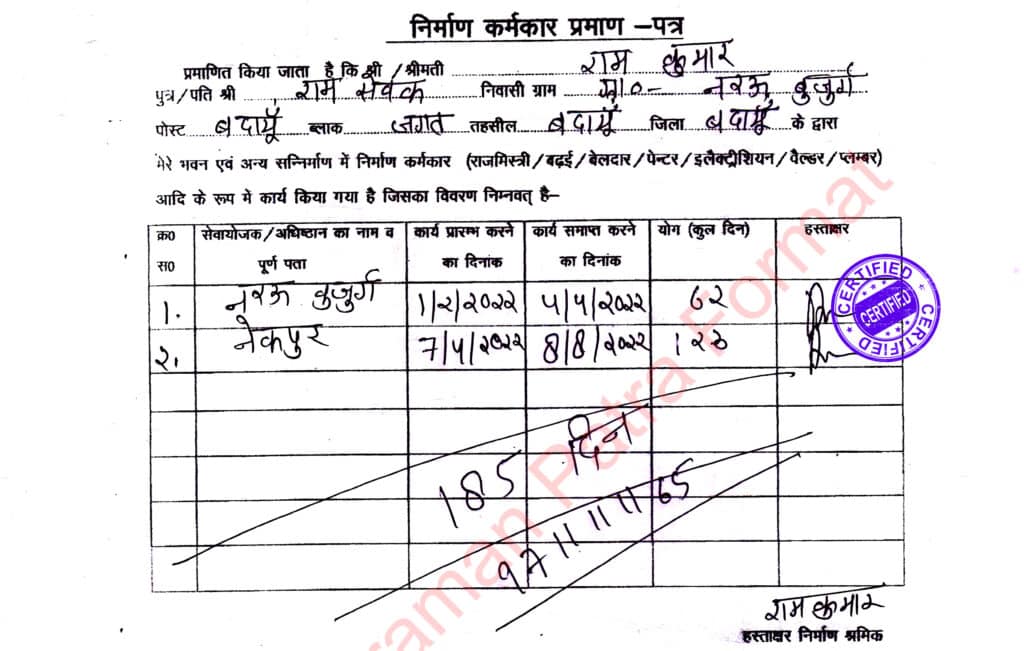 निर्माण कर्मकार प्रमाण –पत्र
प्रमाणित किया जाता है कि श्री / श्रीमती राम कुमार
पुत्र / पति श्री राम सेवक निवासी ग्राम ग्रा०- नवऊ बुजुर्ग
पोस्ट बदायूँ ब्लाक जगत तहसील बदायूँ जिला बदायूँ के द्वारा
मेरे भवन एवं अन्य सन्निर्माण में निर्माण कर्मकार (राजमिस्त्री / बढ़ई / बेलदार / पेन्टर / इलैक्ट्रीशियन / वैल्डर / प्लम्बर)
आदि के रूप में कार्य किया गया है जिसका विवरण निम्नवत् है–
क्र0 सेवायोजक / अधिष्ठान का नाम व कार्य प्रारम्भ करने कार्य समाप्त करने योग (कुल दिन) हस्ताक्षर
स0 पूर्ण पता का दिनांक का दिनांक
1. नवऊ बुजुर्ग 1/2/2022 4/4/2022 62
२. नेकपुर 7/4/2022 8/8/2022 123
185 दिन
CERTIFIED
CERTIFIED
CERTIFIED
CERTIFIED
raman Patra Format
राम कुमार
हस्ताक्षर निर्माण श्रमिक